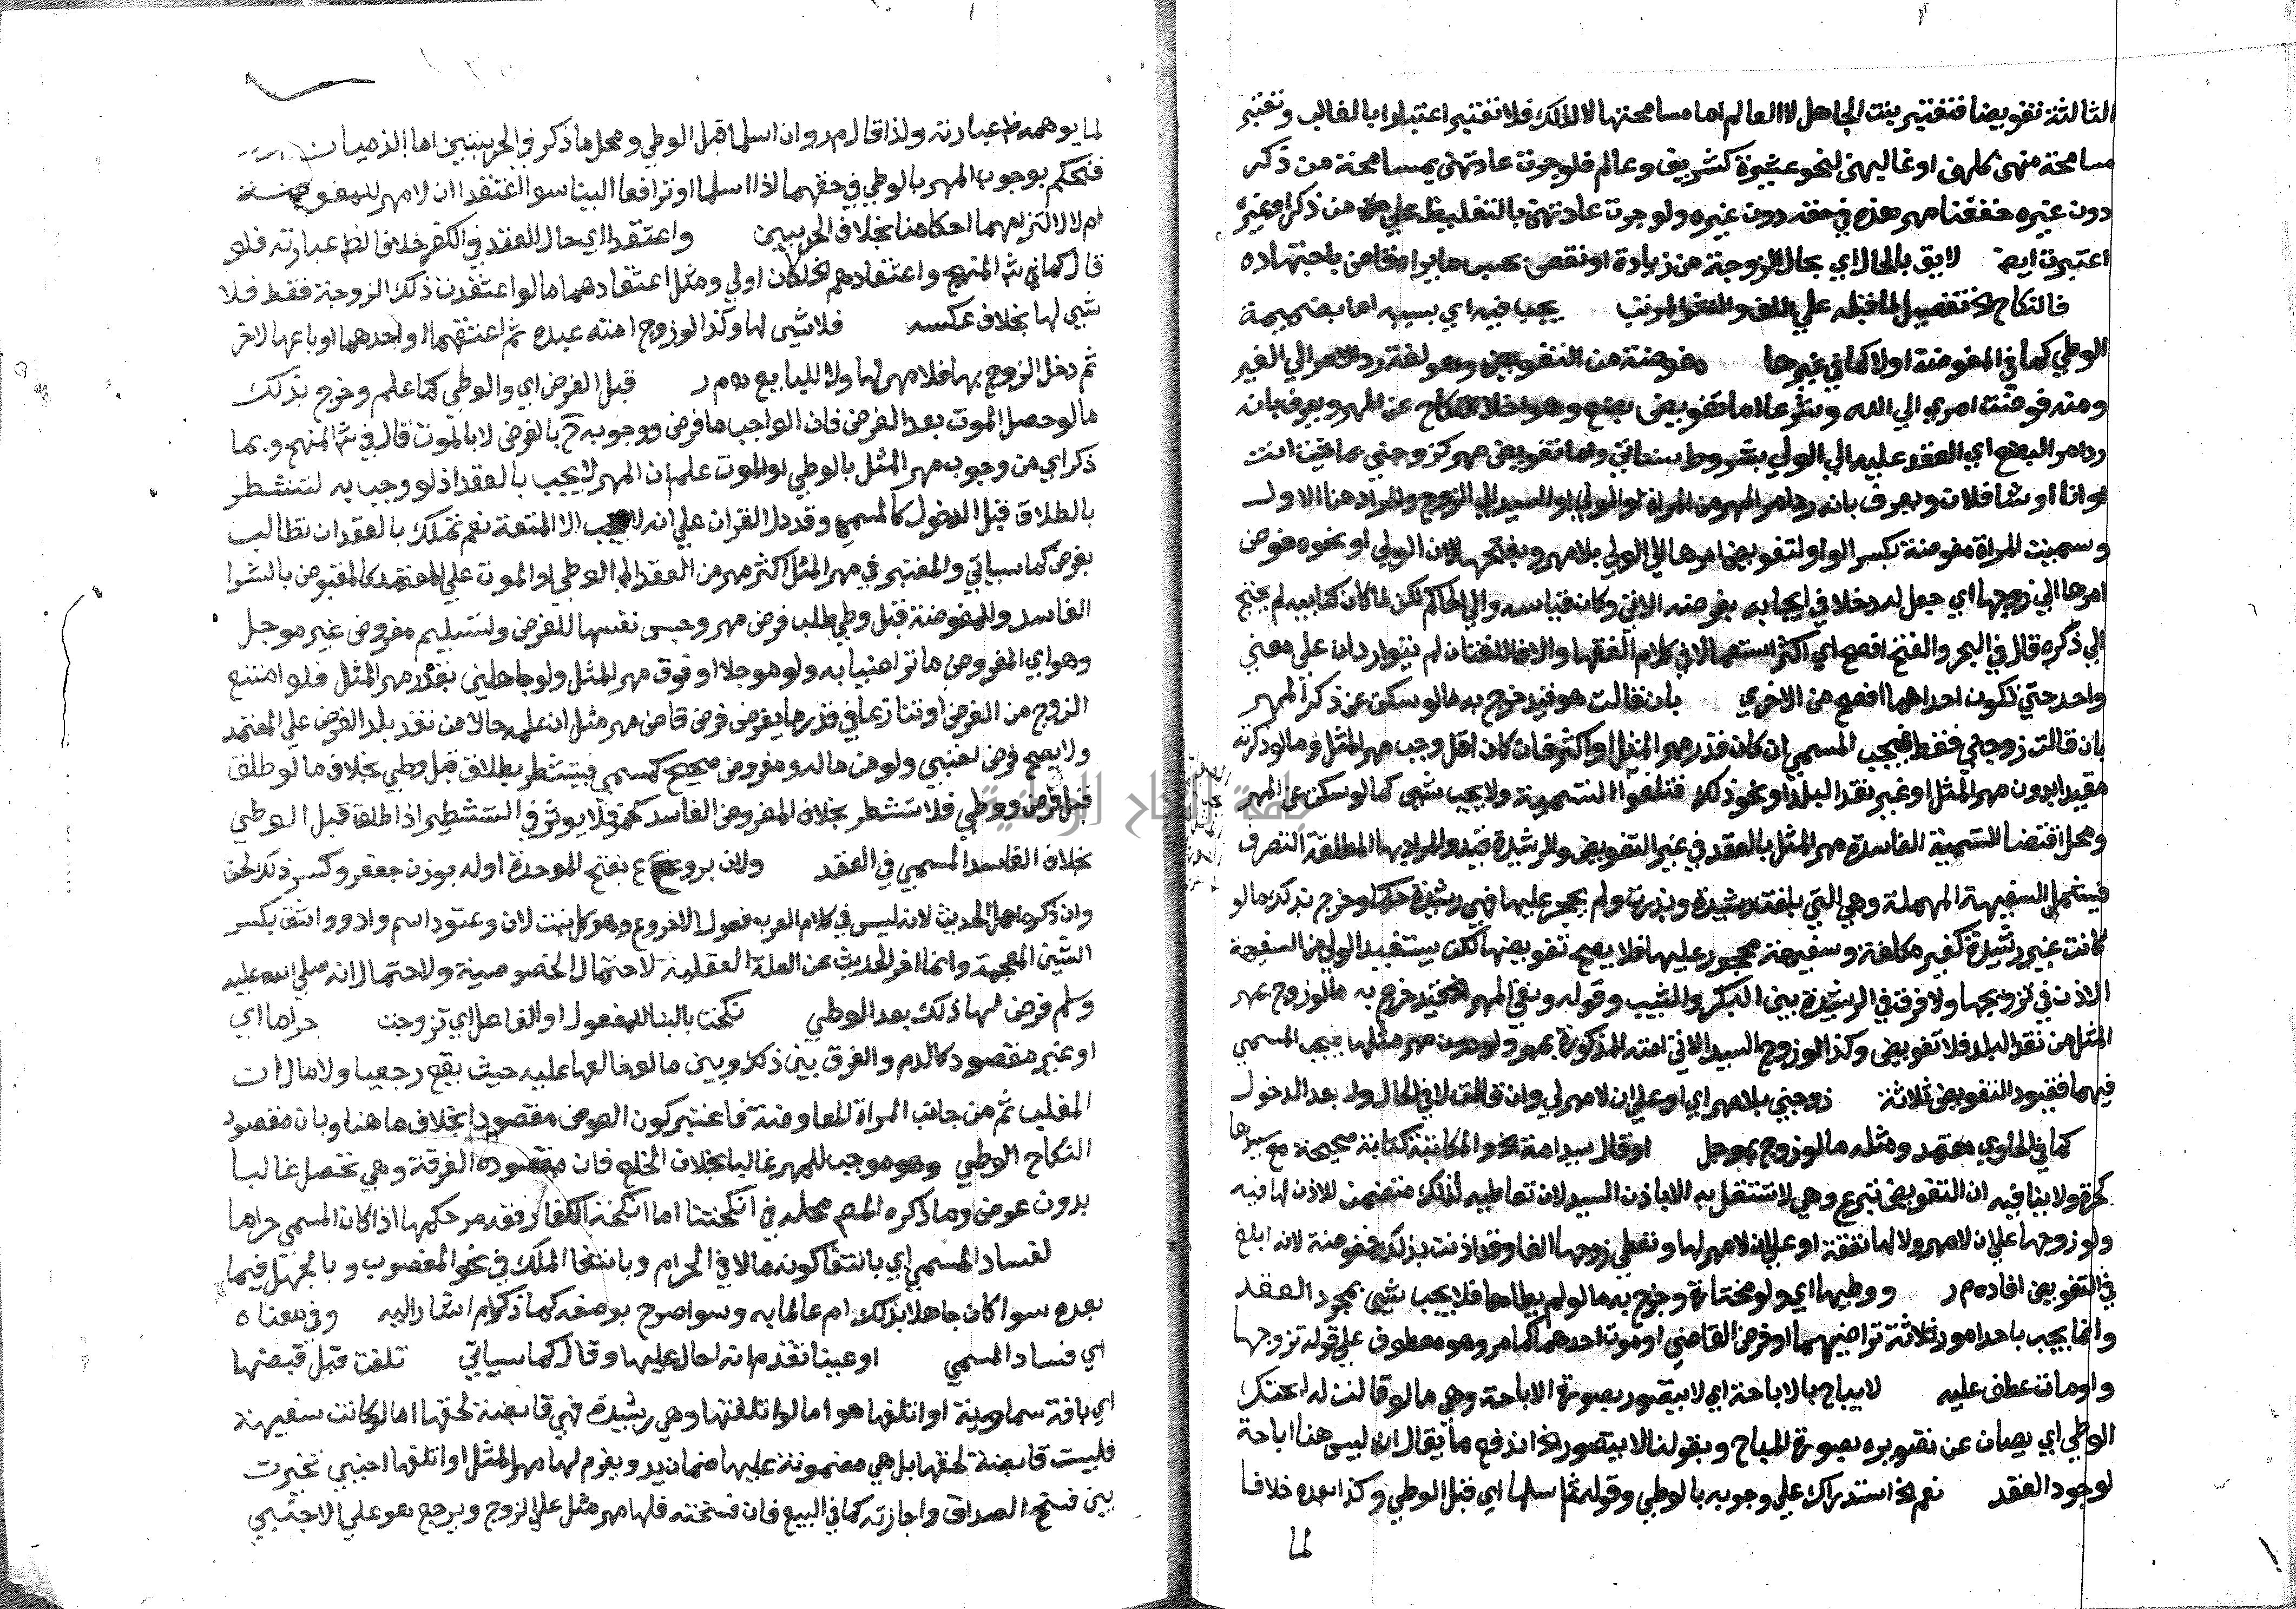 الثالثة تفويضا فتعتبر بنت الجاهل لا العالم اما مسامحتها لا لذلك فلا تعتبر اعتبارا بالغالب وتعتبر
مسامحة منهن كلهن او غالبهن لنحو عشيرة كشريف وعالم فلو جرت عادتهن بمسامحة من ذكر
دون غيره خففنا مهر هذه في حقه دون غيره ولو جرت عادتهن بالتغليظ على من ذكر او غيره
اعتبرت ايضا لايق بالحال اي بحال الزوجة من زيادة او نقص بحسب ما يراه قاض باجتهاده
فالنكاح الخ تفصيل لما قبله على اللف والنشر المرتب يجب فيه اي بسببه اما بضميمة
الوطي كما في المفوضة اولا كما في غيرها مفوضة من التفويض وهو لغة رد الامر الي الغير
ومنه فوضت امري الي الله وشرعا اما تفويض بضع وهو اخلا النكاح عن المهر ويعرف بانه
رد امر البضع اي العقد عليه الي الولي بشروط ستاتي واما تفويض مهر كزوجني بما شيت انت
او انا او شا فلان ويعرف بانه رد امر المهر من المراة او الولي او السيد الي الزوج والمراد هنا الاول
وسميت المراة مفوضة بكسر الواو لتفويض امرها الي الولي بلا مهر وبفتحها لان الولي او نحوه فوض
امرها الي زوجها اي جعل له دخلا في ايجابه بفرضه الاتي وكان قياسه والي الحاكم لكن لما كان كنايبه لم يحتج
الي ذكره قال في البحر والفتح افصح اي اكثر استعمالا في كلام الفقها والا فاللغتان لم يتواردان على معني
واحد حتي تكون احداهما افصح من الاخري بان قالت هو قيد خرج به ما لو سكت عن ذكر المهر
بان قالت زوجني فقط فيجب المسمي ان كان قدر مهر المثل او اكثر فان كان اقل وجب مهر المثل وما لو ذكرته
مقيدا بدون مهر المثل او غير نقد البلد او نحو ذلك فتلغوا التسمية ولا يجب شي كما لو سكت عن المهر
ومحل اقتضا التسمية الفاسدة مهر المثل بالعقد في غير التفويض والرشيدة قيد والمراد بها المطلقة التصرف
فيشمل السفيهة المهملة وهي التي بلغت رشيدة وبذرت ولم يحجر عليها فهي رشيدة حكما وخرج بذلك ما لو
كانت غير رشيدة كغير مكلفة وسفيهة محجور عليها فلا يصح تفويضها لكن يستفيد الولي من السفيهة
الاذن في تزويجها ولا فرق في الرشيدة بين البكر والثيب وقوله ونفي المهر الخ قيد خرج به ما لو زوج بمهر
المثل من نقد البلد فلا تفويض وكذا لو زوج السيد الاتي امته المذكورة بمهر ولو دون مهر مثلها يجب المسمي
فيهما فقيود التفويض ثلاثة زوجني بلا مهر اي او على ان لا مهر لي وان قالت لا في الحال ولا بعد الدخول
كما في الحاوي معتمد ومثله ما لو زوج بموجل او قال سيد امة الخ والمكاتبة كتابة صحيحة مع سيدها
كحرة ولا ينافيه ان التفويض تبرع وهي لا تستقل به الا باذن السيد لان تعاطيه لذلك متضمن للاذن لها فيه
ولو زوجها على ان لا مهر ولا لها نفقة او على ان لا مهر لها وتعطي زوجها الفا وقد اذنت بذلك فمفوضة لانه ابلغ
في التفويض افاده م ر ووطيها اي ولو مختارة وخرج به ما لو لم يطاها فلا يجب شي بمجرد العقد
وانما يجب باحد امور ثلاثة تراضيهما او فرض القاضي او موت احدهما كما مر وهو معطوف على قوله تزوجها
واو مات عطف عليه لا يباح بالاباحة اي لا يتصور بصورة الاباحة وهي ما لو قالت له ابحتك
الوطي اي يصان عن تصويره بصورة المباح وبقولنا لا يتصور الخ اندفع ما يقال انه ليس هنا اباحة
لوجود العقد نعم الخ استدراك على وجوبه بالوطي وقوله ثم اسلما اي قبل الوطي وكذا بعده خلافا
لما
لما يوهمه ظ عبارته ولذا قال م ر وان اسلما قبل الوطي ومحل ما ذكر في الحربيين اما الذميان
فنحكم بوجوب المهر بالوطي في حقهما اذا اسلما او ترافعا الينا سوا اعتقدا ان لا مهر للمفوضة
ام لا لالتزامهما احكامنا بخلاف الحربيين واعتقدا اي حال العقد في الكفر خلافا لظ عبارته فلو
قال كما في شم المنهج واعتقادهم الخ لكان اولي ومثل اعتقادهما ما لو اعتقدت ذلك الزوجة فقط فلا
شي لها بخلاف عكسه فلا شي لها وكذا لو زوج امته عبده ثم اعتقهما او احدهما او باعها لاخر
ثم دخل الزوج بها فلا مهر لها ولا للبايع م ر قبل الفرض اي والوطي كما علم وخرج بذلك
ما لو حصل الموت بعد الفرض فان الواجب ما فرض ووجوبه ح بالفرض لا بالموت قال في شم المنهج وبما
ذكر اي من وجوب مهر المثل بالوطي او الموت علم ان المهر لا يجب بالعقد اذ لو وجب به لتشطر
بالطلاق قبل الدخول كالمسمي وقد دل القران على انه لا يجب الا المتعة نعم تملك بالعقد ان تطالب
بفرض كما سياتي والمعتبر في مهر المثل اكثر مهر من العقد الي الوطي او الموت على المعتمد كالمقبوض بالشرا
الفاسد وللمفوضة قبل وطي طلب فرض مهر وحبس نفسها للفرض ولتسليم مفروض غير موجل
وهو اي المفروض ما تراضيا به ولو موجلا او فوق مهر المثل ولو جاهلين بقدر مهر المثل فلو امتنع
الزوج من الفرض او تنازعا في قدر ما يفرض فرض قاض مهر مثل ان علمه حالا من نقد بلد الفرض على المعتمد
ولا يصح فرض اجنبي ولو من ماله ومفروض صحيح كمسمي فيتشطر بطلاق قبل وطي بخلاف ما لو طلق
قبل فرض ووطي فلا تشطر بخلاف المفروض الفاسد كخمر فلا يوثر في التشطير اذا طلق قبل الوطي
بخلاف الفاسد المسمي في العقد ولان بروع بفتح الموحدة اوله بوزن جعفر وكسر ذلك لحن
وان ذكره اهل الحديث لانه ليس في كلام العرب فعول الا خروع وهو كل نبت لان وعتود اسم واد وواشق بكسر
الشين المعجمة وانما اخر الحديث عن العلة العقلية لاحتمال الخصوصية ولاحتمال انه صلي الله عليه
وسلم فرض لها ذلك بعد الوطي نكحت بالبنا للمفعول او الفاعل اي تزوجت حراما اي
او غير مقصود كالدم والفرق بين ذلك وبين ما لو خالعها عليه حيث يقع رجعيا ولا مال ان
المغلب ثم من جانب المراة المعاوضة فاعتبر كون العوض مقصودا بخلاف ما هنا وبان مقصود
النكاح الوطي وهو موجب للمهر غالبا بخلاف الخلع فان مقصوده الفرقة وهي تحصل غالبا
بدون عوض وما ذكره المصم محله في انكحتنا اما انكحة الكفار فقد مر حكمها اذا كان المسمي حراما
لفساد المسمي اي بانتفا كونه مالا في الحرام وبانتفا الملك في نحو المغصوب وبالجهل فيما
بعده سوا كان جاهلا بذلك ام عالما به وسوا صرح بوصفه كما ذكر ام اشار اليه وفي معناه
اي فساد المسمي او عينا تقدم انه احال عليها وقال كما سياتي تلفت قبل قبضها
اي بافة سماوية او اتلفها هو اما لو اتلفتها وهي رشيدة فهي قابضة لحقها اما لو كانت سفيهة
فليست قابضة لحقها بل هي مضمونة عليها ضمان يد ويغرم لها مهر المثل او اتلفها اجنبي تخيرت
بين فسخ الصداق واجازته كما في البيع فان فسخته فلها مهر مثل على الزوج ويرجع هو على الاجنبي